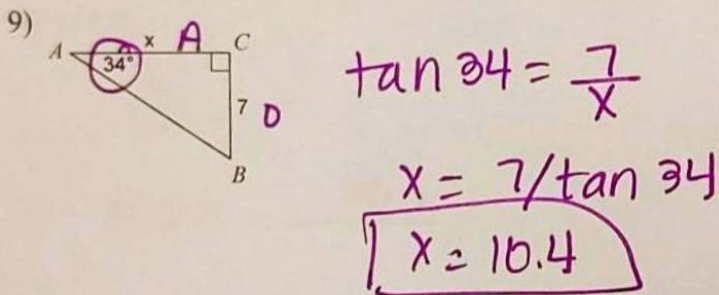 9)
A x A C
34°
7 O
B
tan 34 = 7/x
x = 7/tan 34
x = 10.4